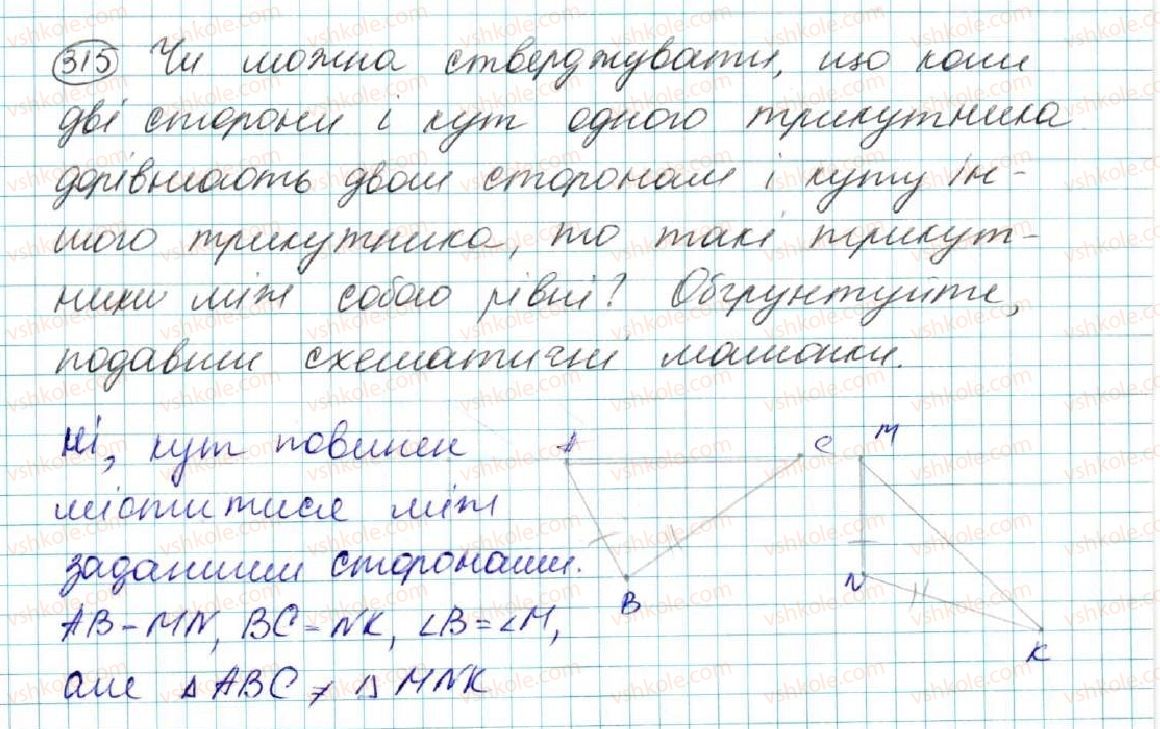 315 Чи можна стверджувати, що коли
дві сторони і кут одного трикутника
дорівнюють двом сторонам і куту ін-
шого трикутника, то такі трикут-
ники між собою рівні? Обґрунтуйте,
подавши схематичні малюнки.
Ні, кут повинен
міститися між
заданими сторонами.
AB = MN, BC = NK, ∠B = ∠M,
але △ ABC ≠ △ MNK
A
C
M
B
N
K
vshkole.com